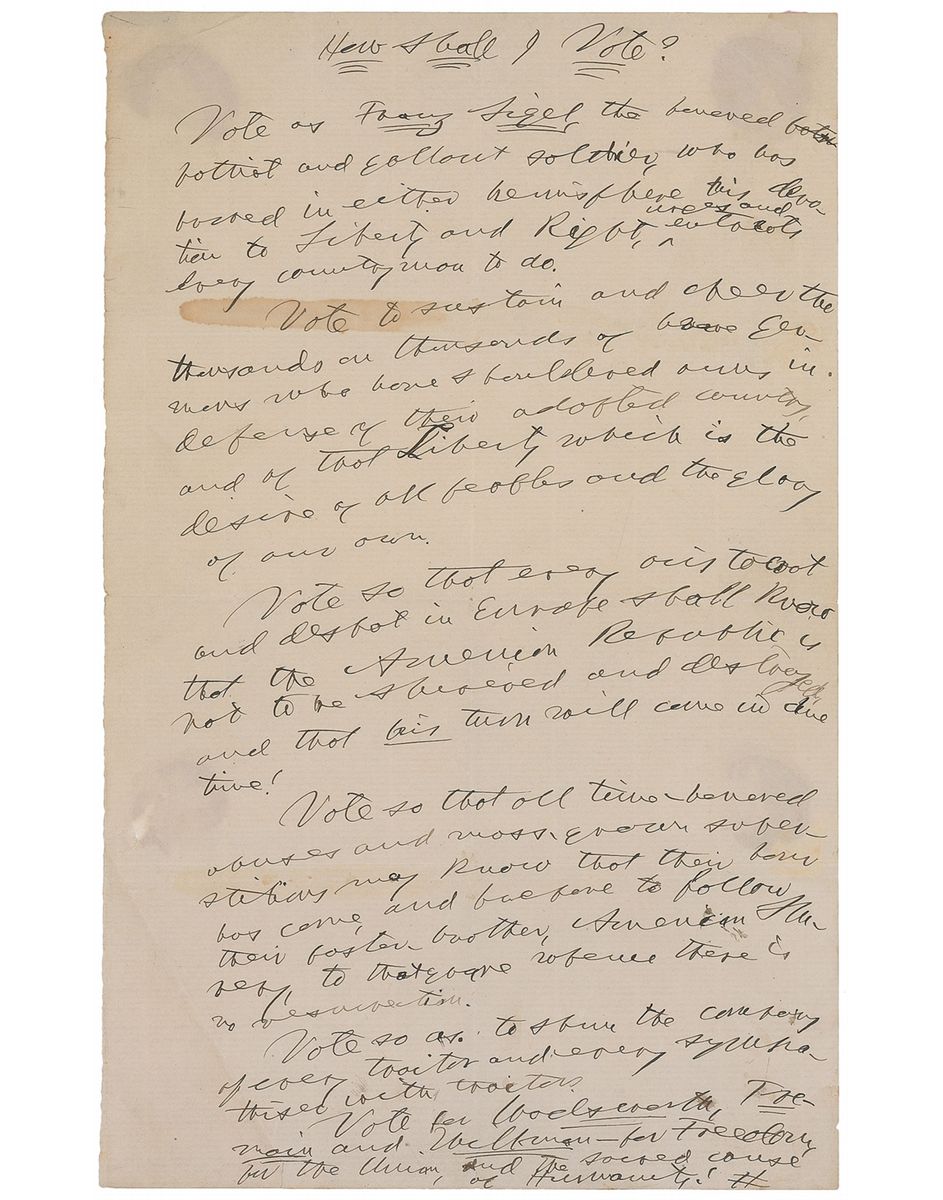 How shall I Vote?
Vote as Franz Sigel, the beloved
patriot and gallant soldier, who has
proved in either hemisphere his devo-
tion to Liberty and Right, urges and entreats
every countryman to do.
Vote to sustain and cheer the
thousands on thousands of brave Ger-
mans who have shouldered arms in
defense of their adopted country,
and of that Liberty which is the
desire of all peoples and the glory
of our own.
Vote so that every aristocrat
and despot in Europe shall know
that the American Republic is
not to be shivered and destroyed,
and that his turn will come in due
time!
Vote so that all time-honored
abuses and moss-grown super-
stitions may know that their hour
has come, and prepare to follow
their foster-brother, American Sla-
very, to that grave whence there is
no resurrection.
Vote so as to shun the company
of every traitor and every sympa-
thiser with traitors.
Vote for Wadsworth, Tre-
main and Willkman—for Freedom,
for the Union, and the sacred cause
of Humanity!